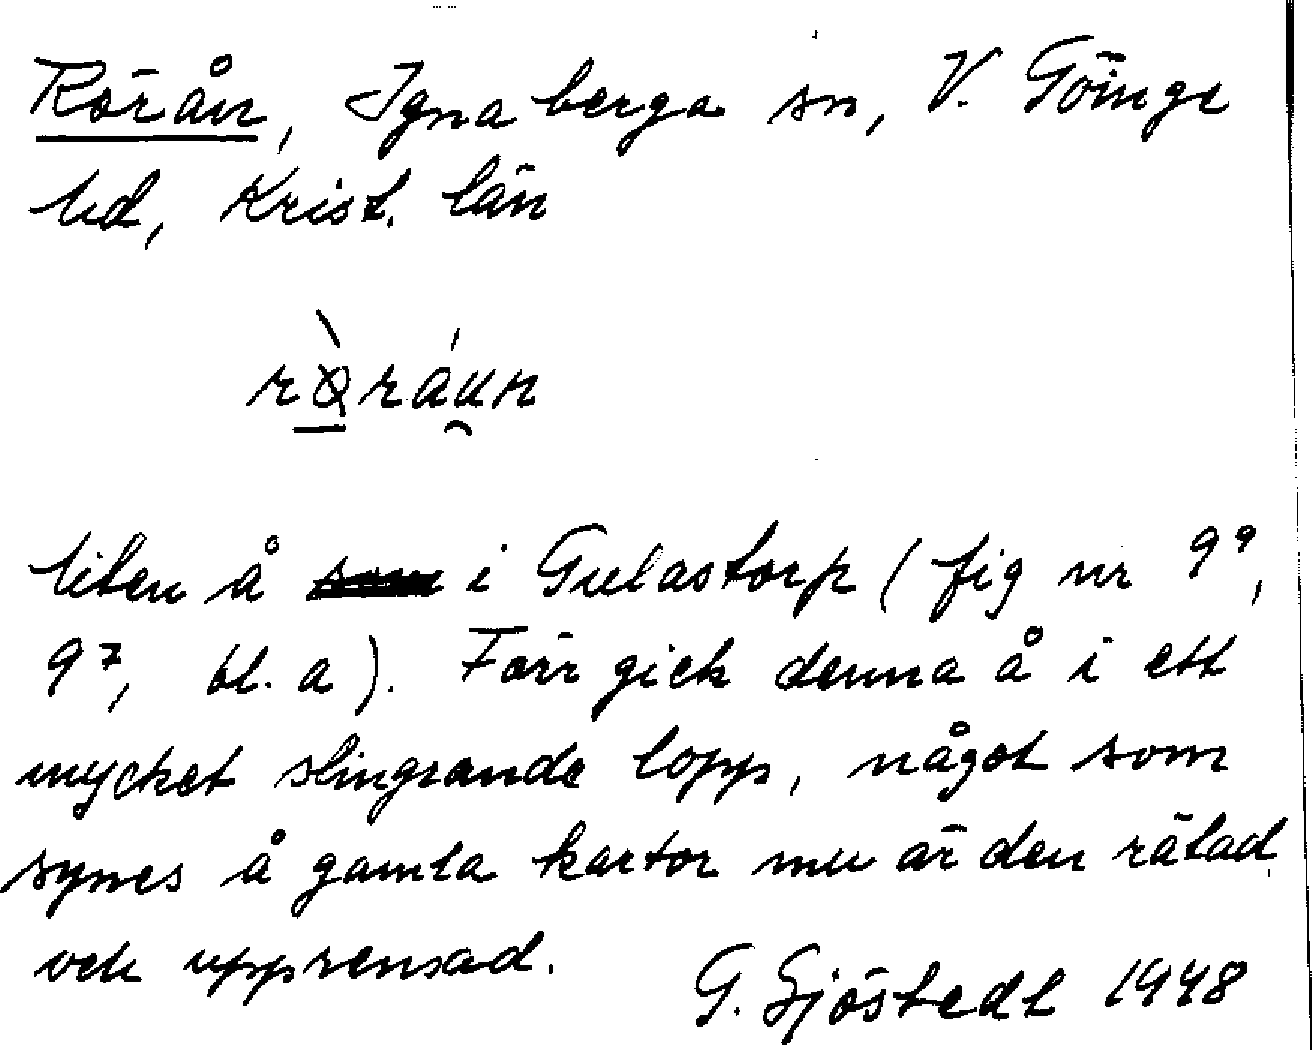 Rörån, Ignaberga sn, V. Göinge
hd, Krist. län
liten å i Gulastorp (fig nr 9⁹,
9⁷, bl. a). Förr gick denna å i ett
mycket slingrande lopp, något som
synes å gamla kartor nu är den rätad
och upprensad.
G. Sjöstedt 1948